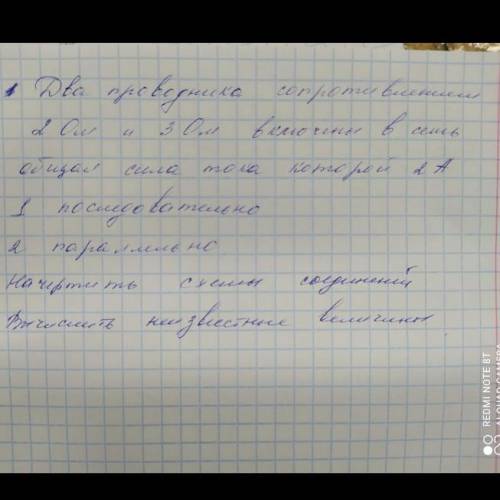 1 Два проводника сопротивлением
2 Ом и 3 Ом включены в сеть
общая сила тока которой 2А
1 последовательно
2 параллельно
Начертить схемы соединений
Вычислить неизвестные величины
REDMI NOTE 8T
AI QUAD CAMERA